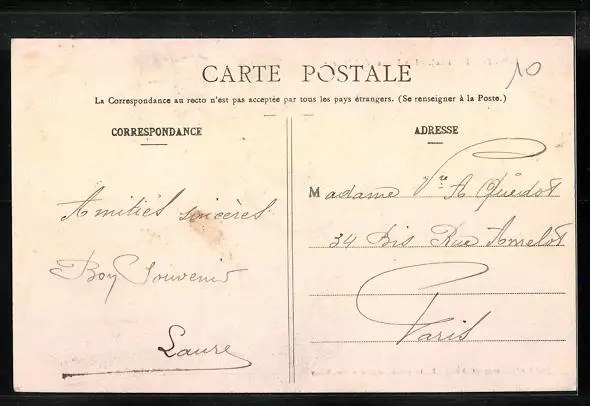 10
CARTE POSTALE
La Correspondance au recto n'est pas acceptée par tous les pays étrangers. (Se renseigner à la Poste.)
CORRESPONDANCE
Amitiés sincères
Boy Souvenir
Laure
ADRESSE
Madame Vve A Quédot
34 Bis Rue Amelot
Paris